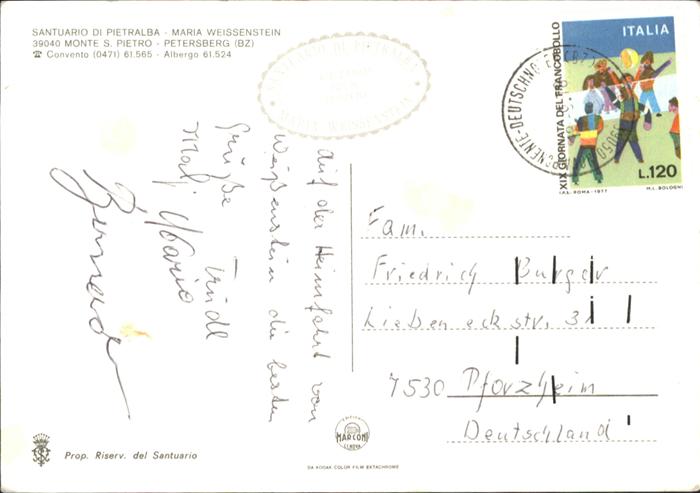 SANTUARIO DI PIETRALBA - MARIA WEISSENSTEIN
39040 MONTE S. PIETRO - PETERSBERG (BZ)
☎ Convento (0471) 61.565 - Albergo 61.524
SANTUARIO DI PIETRALBA
MARIA WEISSENSTEIN
ITALIA
XIX GIORNATA DEL FRANCOBOLLO
L.120
I.P.S. - ROMA - 1977
M.L. BOLOGNI
39050
Auf der Heimfahrt von
Weißenstein die besten
Grüße Trudl
Mario
Bernad
Fam.
Friedrich Burger
Liebeneckstr. 31
7530 Pforzheim
Deutschland
EDITIONS
MARCONI
GENOVA
Prop. Riserv. del Santuario
DA KODAK COLOR FILM EKTACHROME